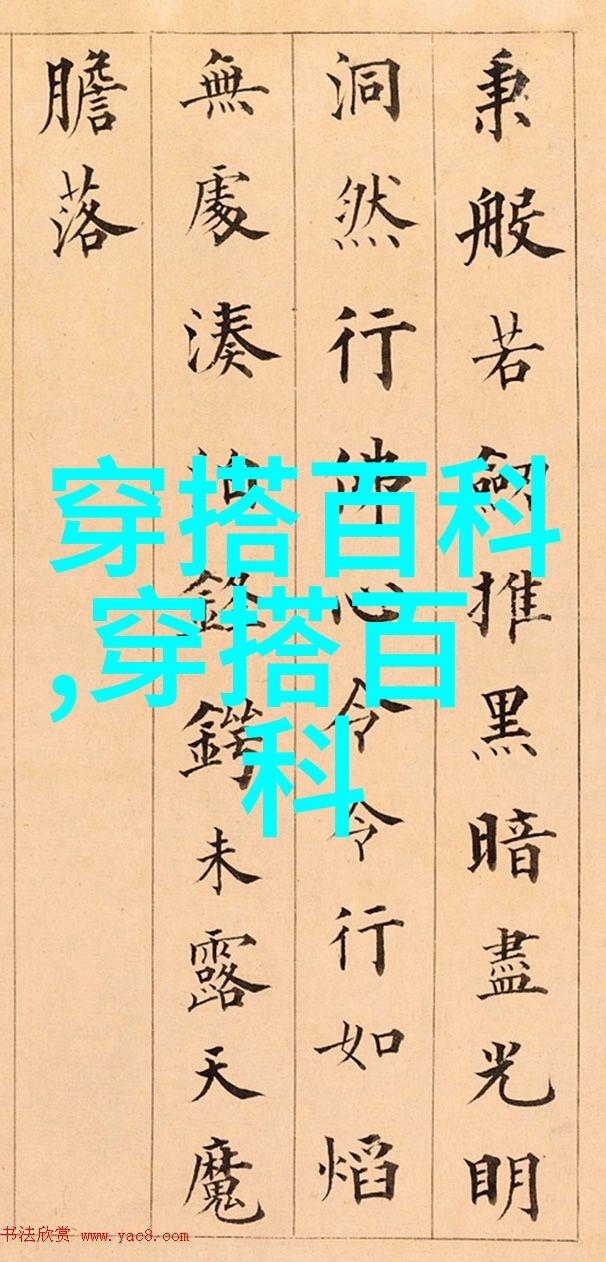 秉般若劔推黑暗盡光明
洞然行佛心令令行如焰
無處湊泊鋒鍔未露天魔
膽落
穿搭百科
,穿搭百
科
书法欣赏 www.yac8.com